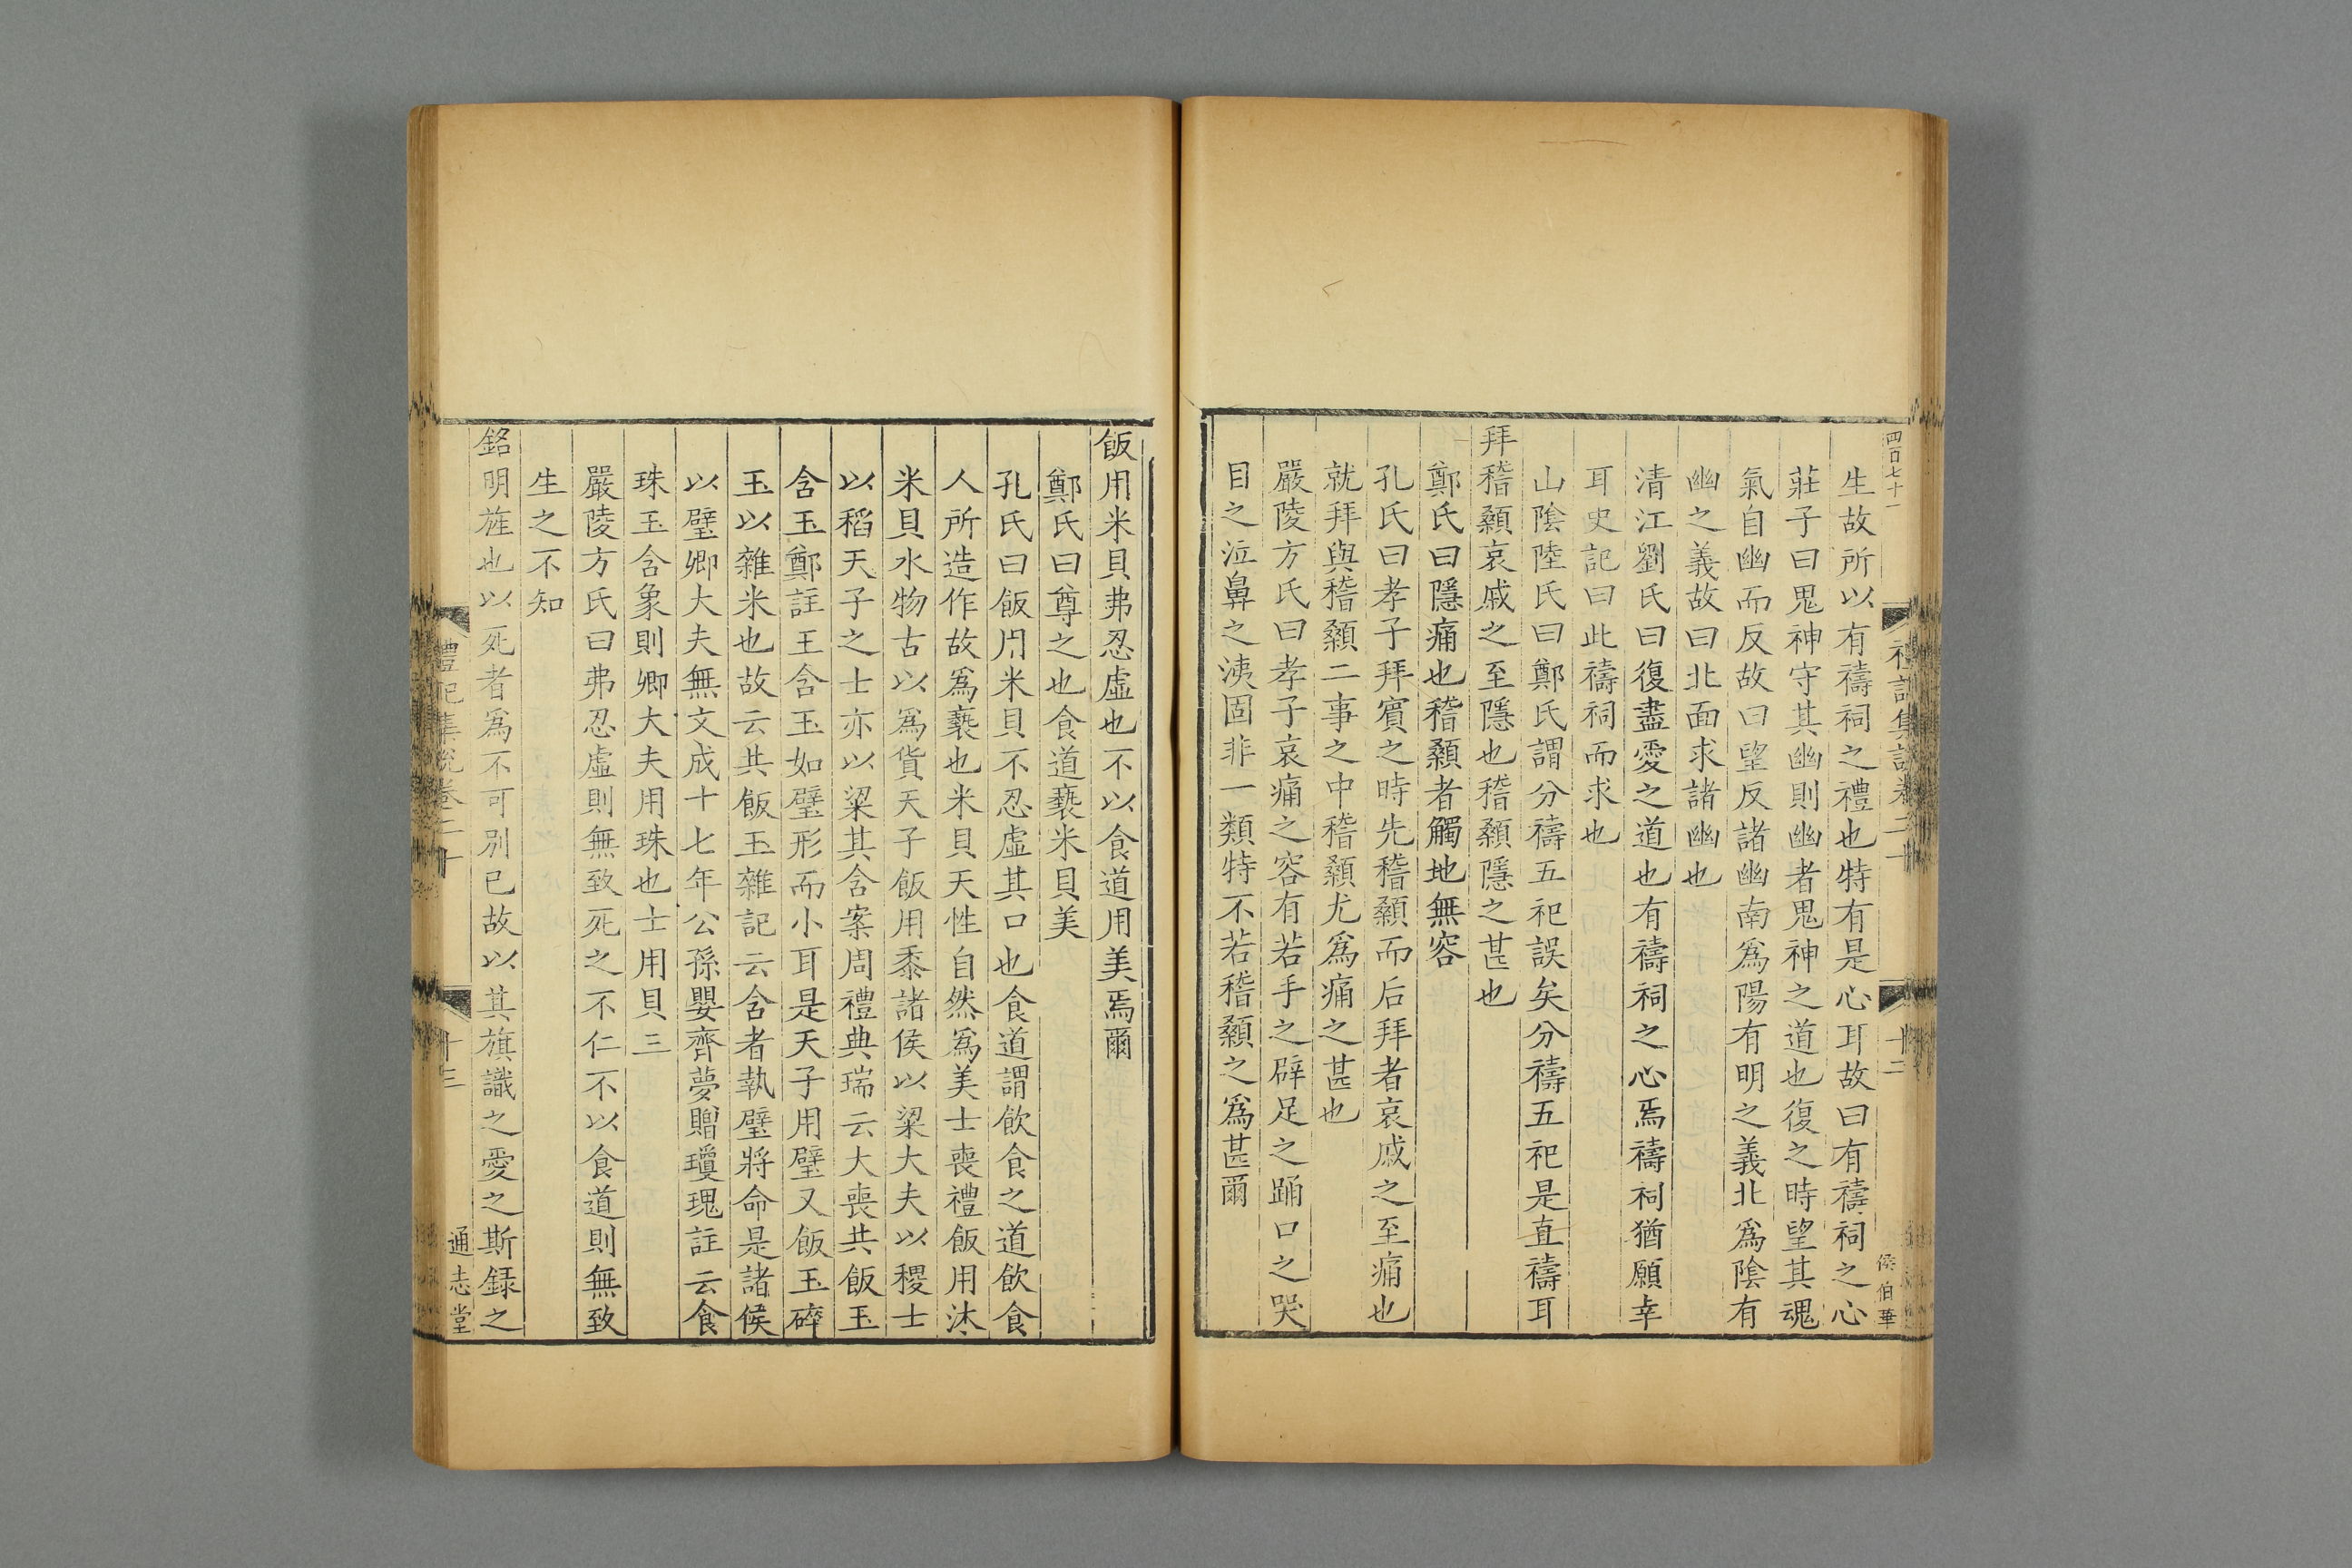 四百七十一
禮記集說卷二十
十二
侯伯華
生故所以有禱祠之禮也特有是心耳故曰有禱祠之心
莊子曰鬼神守其幽則幽者鬼神之道也復之時望其魂
氣自幽而反故曰望反諸幽南爲陽有明之義北爲陰有
幽之義故曰北面求諸幽也
清江劉氏曰復盡愛之道也有禱祠之心焉禱祠猶願幸
耳史記曰此禱祠而求也
山陰陸氏曰鄭氏謂分禱五祀誤矣分禱五祀是直禱耳
拜稽顙哀戚之至隱也稽顙隱之甚也
鄭氏曰隱痛也稽顙者觸地無容
孔氏曰孝子拜賓之時先稽顙而后拜者哀戚之至痛也
就拜與稽顙二事之中稽顙尤爲痛之甚也
嚴陵方氏曰孝子哀痛之容有若手之辟足之踊口之哭
目之泣鼻之洟固非一類特不若稽顙之爲甚爾
飯用米貝弗忍虛也不以食道用美焉爾
鄭氏曰尊之也食道褻米貝美
孔氏曰飯用米貝不忍虛其口也食道謂飲食之道飲食
人所造作故爲褻也米貝天性自然爲美士喪禮飯用沐
米貝水物古以爲貨天子飯用黍諸侯以粱大夫以稷士
以稻天子之士亦以粱其含案周禮典瑞云大喪共飯玉
含玉鄭註王含玉如璧形而小耳是天子用璧又飯玉碎
玉以雜米也故云共飯玉雜記云含者執璧將命是諸侯
以璧卿大夫無文成十七年公孫嬰齊夢贈瓊瑰註云食
珠玉含象則卿大夫用珠也士用貝三
嚴陵方氏曰弗忍虛則無致死之不仁不以食道則無致
生之不知
銘明旌也以死者爲不可別已故以其旗識之愛之斯録之
禮記集說卷二十
十三
通志堂